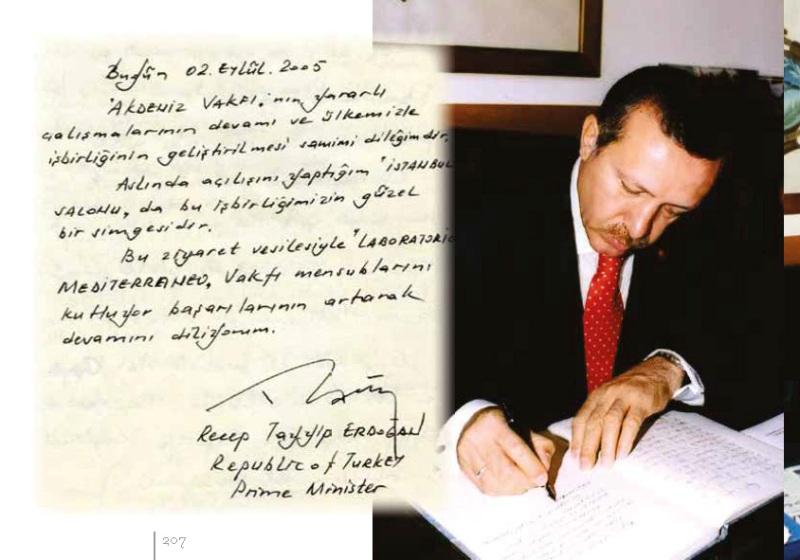 Bugün 02. Eylül. 2005
"AKDENİZ VAKFI"nın yararlı
çalışmalarının devamı ve ülkemizle
işbirliğinin geliştirilmesi samimi dileğimdir.
Aslında açılışını yaptığım "İSTANBUL
SALONU, da bu işbirliğimizin güzel
bir simgesidir.
Bu ziyaret vesilesiyle "LABORATORIO
MEDITERRANEO, Vakfı mensublarını
kutluyor başarılarının artarak
devamını diliyorum.
Recep Tayyip ERDOĞAN
Republic of TURKEY
Prime Minister
207